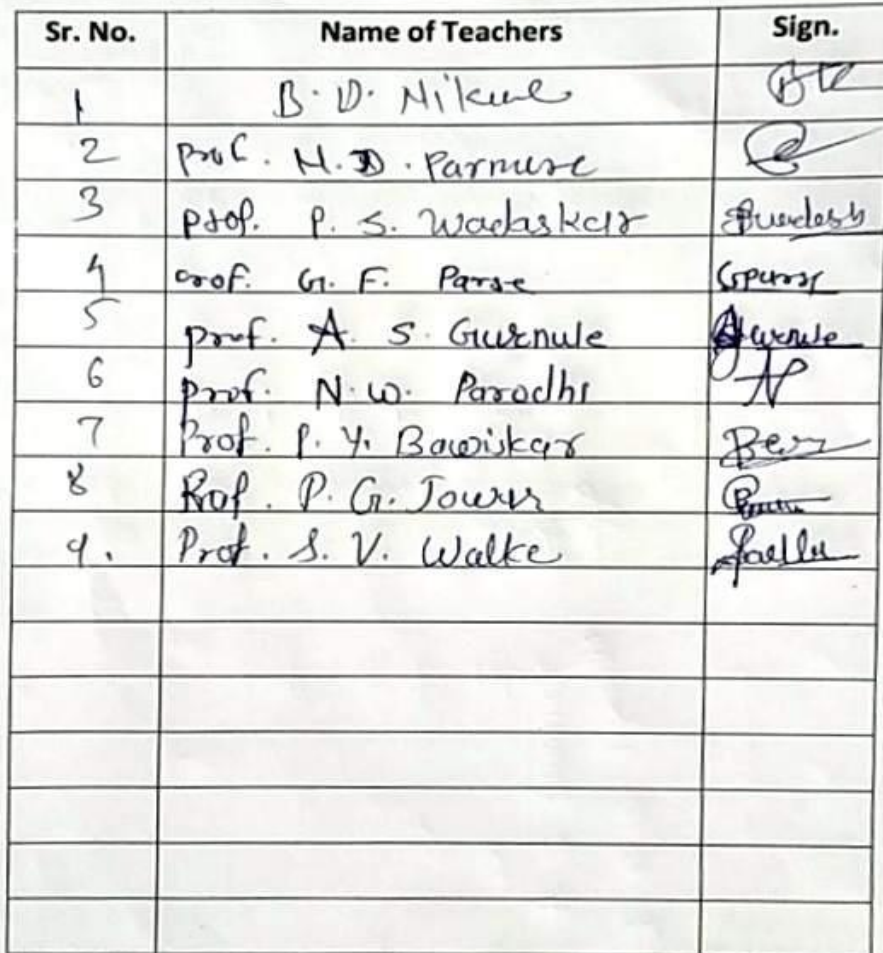 Sr. No. Name of Teachers Sign.
1 B. D. Nikule
2 Prof. N. D. Parmure
3 Prof. P. S. Wadaskar
4 Prof. G. F. Parse
5 Prof. A. S. Gurnule Gurnule
6 Prof. N. W. Parodhi
7 Prof. P. Y. Bawiskar
8 Prof. P. G.
9. Prof. S. V. Walke